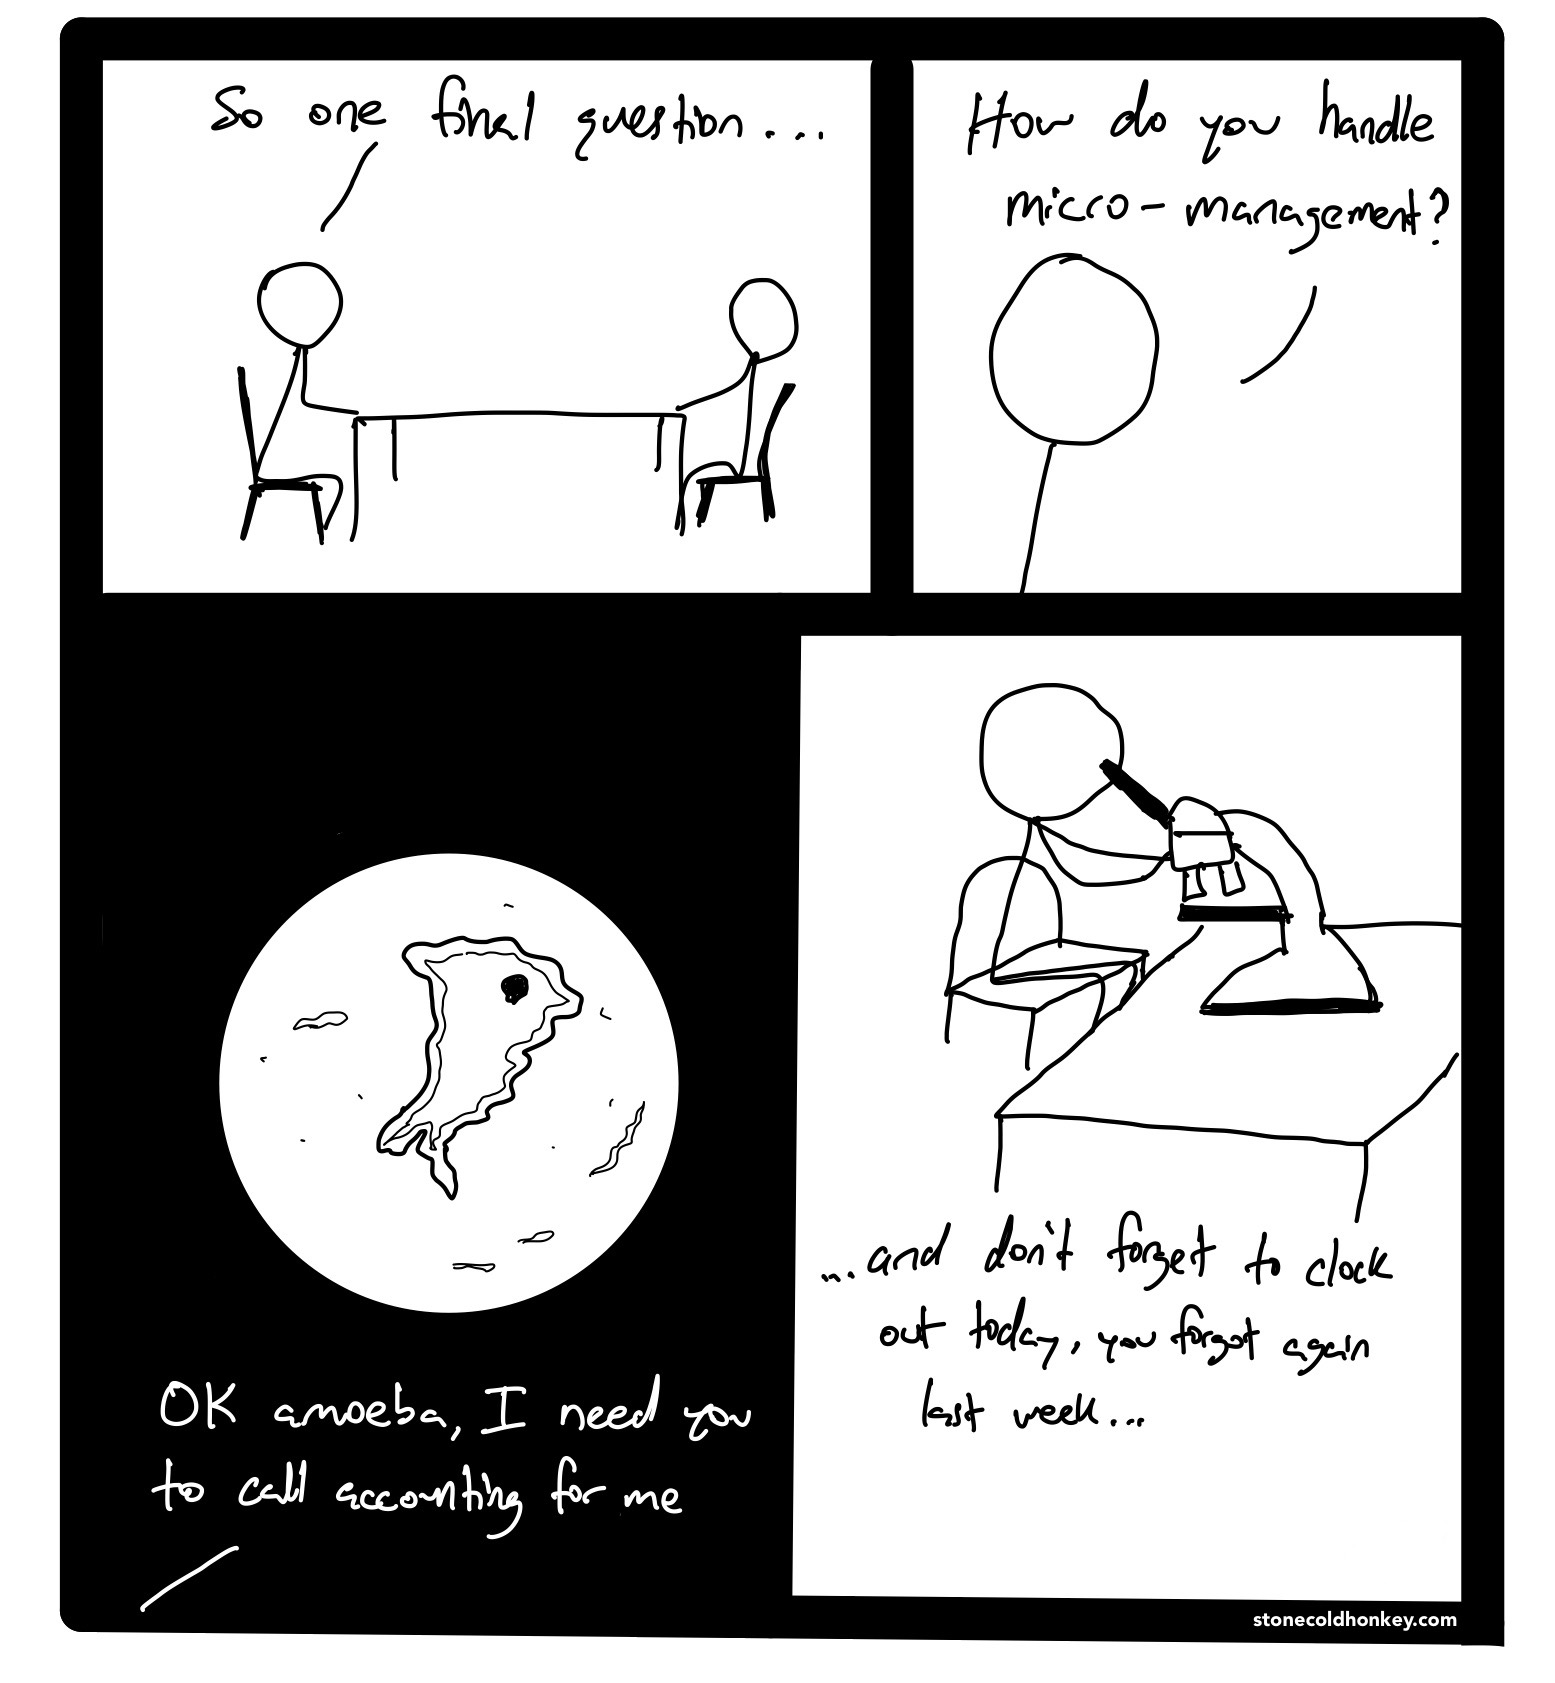 So one final question...
How do you handle
micro-management?
OK amoeba, I need you
to call accounting for me
...and don't forget to clock
out today, you forgot again
last week...
stonecoldhonkey.com